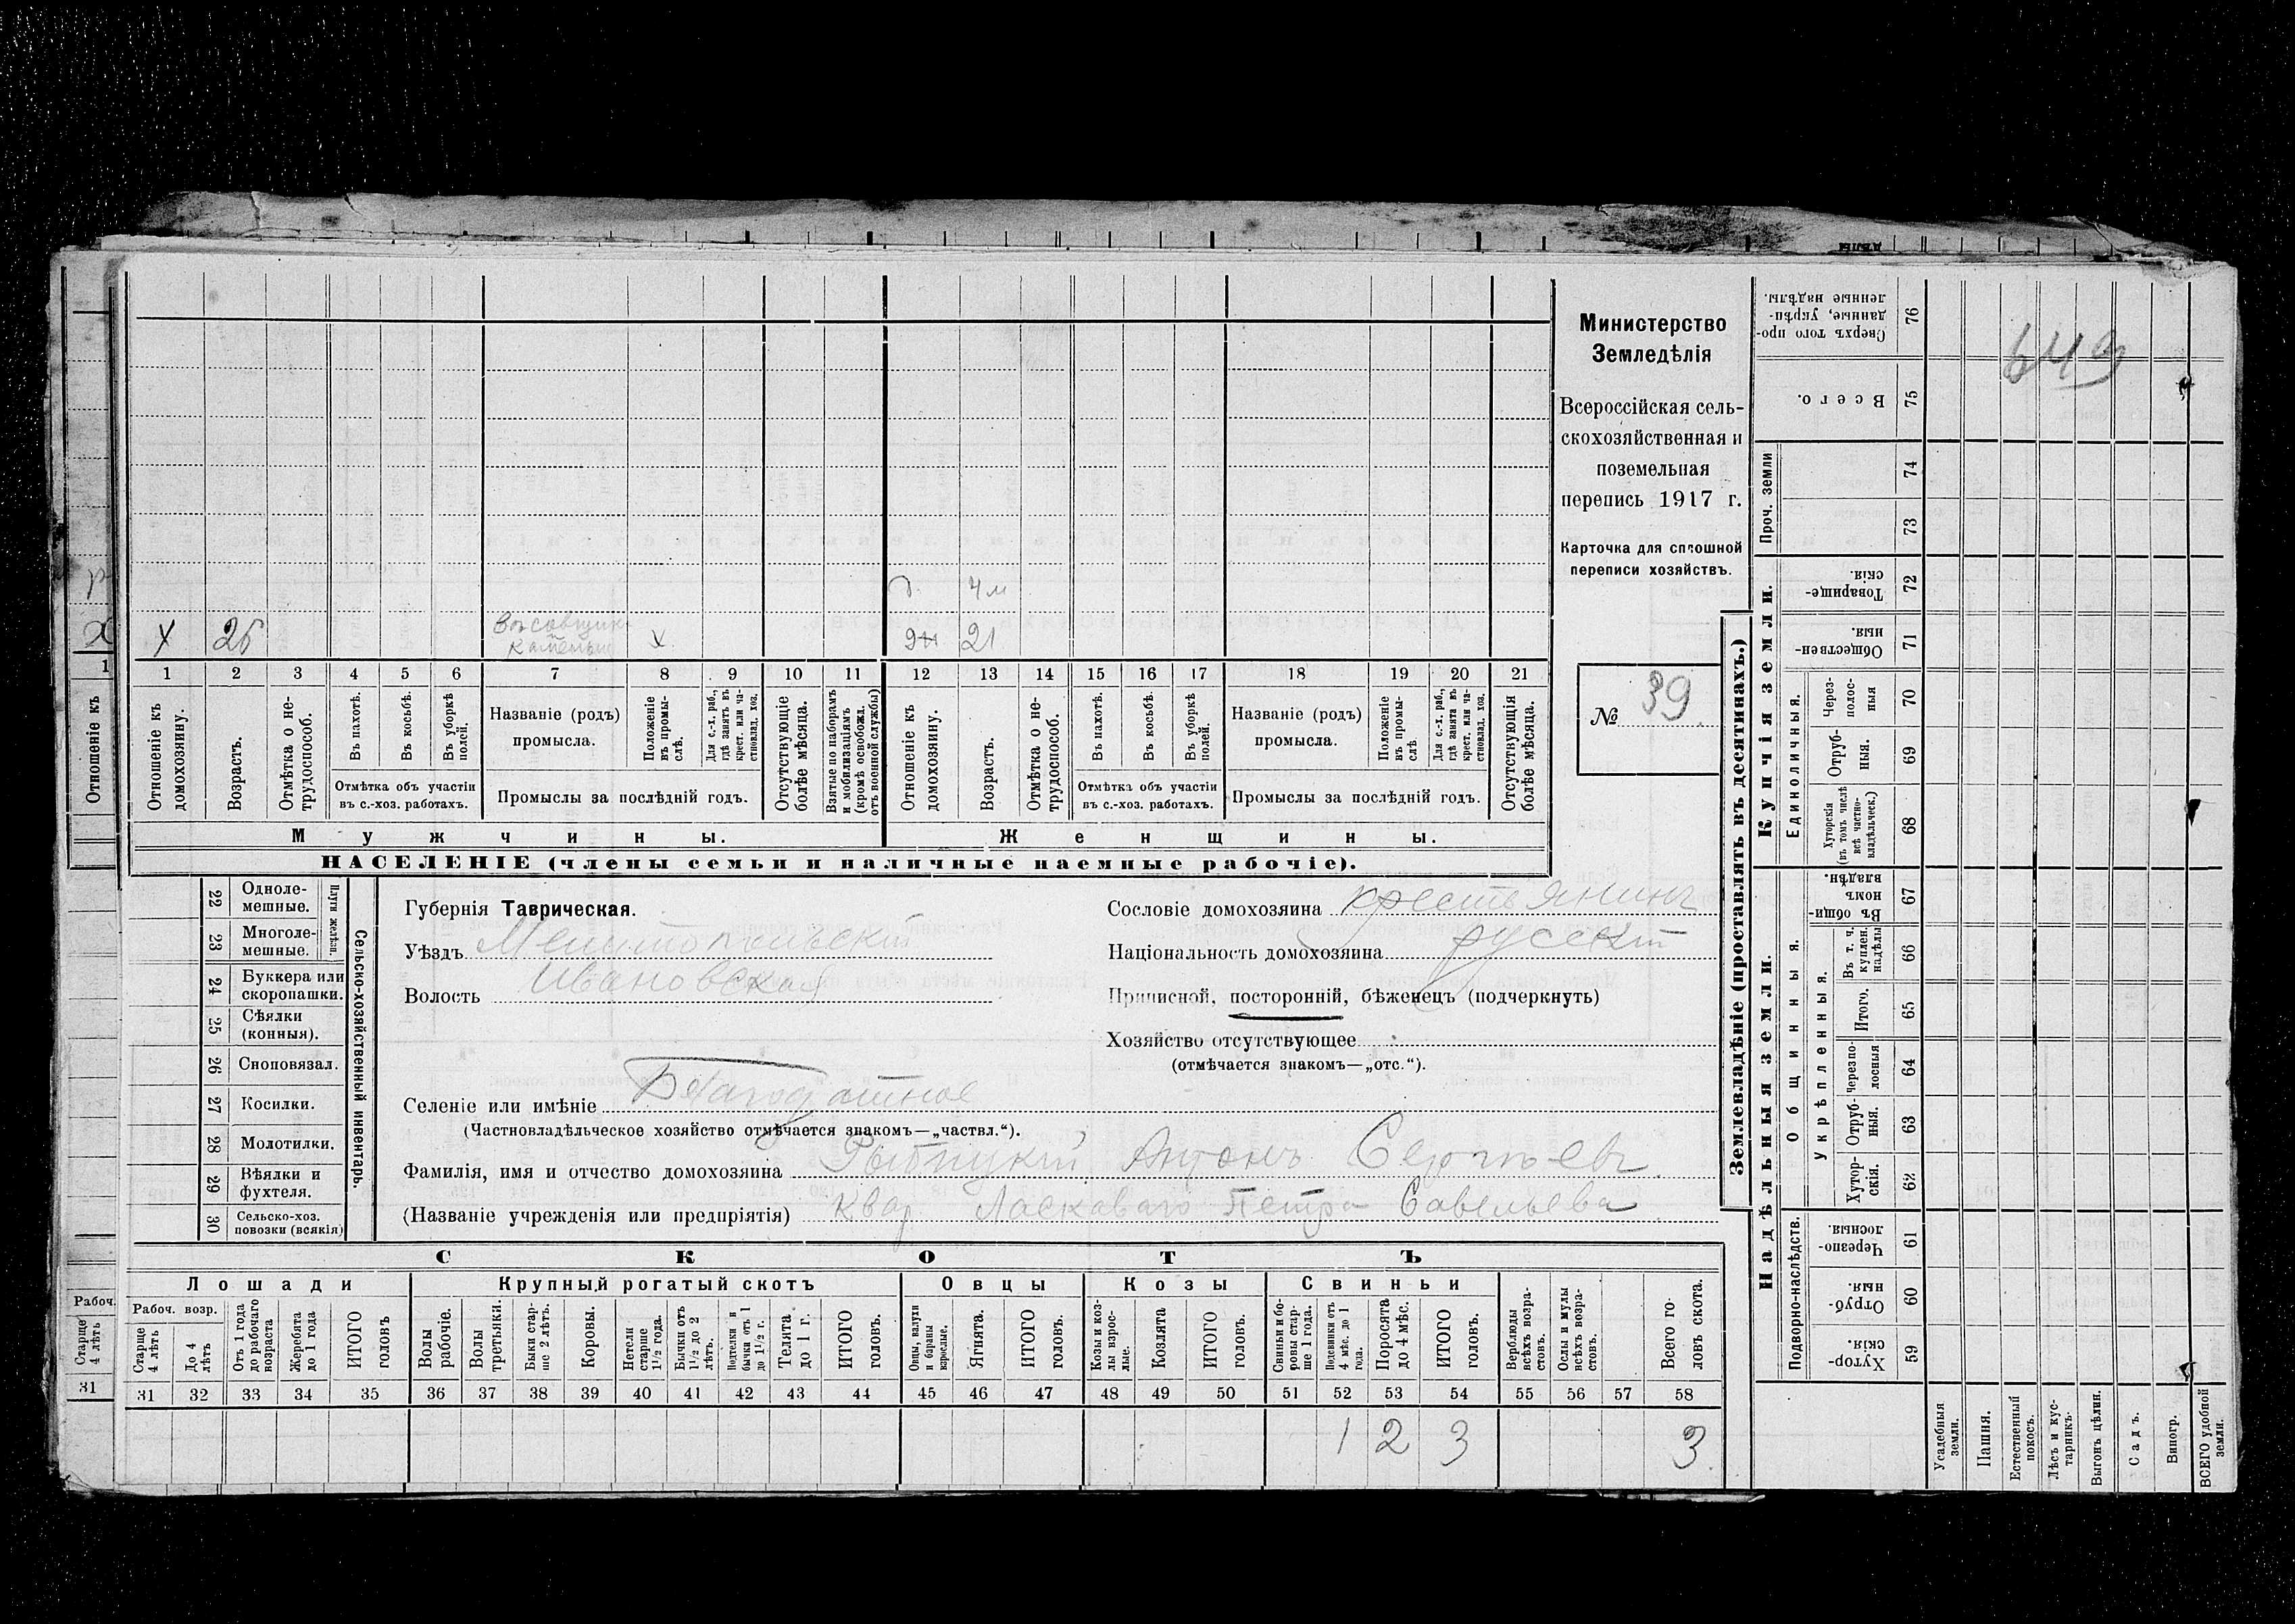 Министерство
Земледѣлія
Всероссійская сель-
скохозяйственная и
поземельная
перепись 1917 г.
Карточка для сплошной
переписи хозяйствъ.
№ 39
649
д. 4 м
Х 26 Х 21
1 2 3 4 5 6 7 8 9 10 11 12 13 14 15 16 17 18 19 20 21
Отношеніе къ домохозяину.
Возрастъ.
Отмѣтка о не-трудоспособ.
Въ пахотѣ.
Въ косьбѣ.
Въ уборкѣ полей.
Отмѣтка объ участіи
въ с.-хоз. работахъ.
Названіе (родъ)
промысла.
Положеніе въ промы-слѣ.
Для с.-х. раб., гдѣ занятъ въ крест. или ча-стновлад. хоз.
Промыслы за послѣдній годъ.
Отсутствующіе болѣе мѣсяца.
Взятые по наборамъ и мобилизаціямъ (кромѣ освобожд. отъ военной службы)
Отношеніе къ домохозяину.
Возрастъ.
Отмѣтка о не-трудоспособ.
Въ пахотѣ.
Въ косьбѣ.
Въ уборкѣ полей.
Отмѣтка объ участіи
въ с.-хоз. работахъ.
Названіе (родъ)
промысла.
Положеніе въ промы-слѣ
Для с.-х. раб., гдѣ занята въ крест. или ча-стновлад. хоз.
Промыслы за послѣдній годъ.
Отсутствующія болѣе мѣсяца.
Мужчины.
Женщины.
НАСЕЛЕНІЕ (члены семьи и наличные наемные рабочіе).
22 Одноле-мешные.
23 Многоле-мешные.
Плуги желѣзн.
24 Буккера или скоропашки.
25 Сѣялки (конныя).
26 Сноповязал.
27 Косилки.
28 Молотилки.
29 Вѣялки и фухтеля.
30 Сельско-хоз. повозки (всякія)
Сельско-хозяйственный инвентарь.
Губернія Таврическая.
Уѣздъ Мелитопольскій
Волость Ивановская
Сословіе домохозяина крестьянинъ
Національность домохозяина русскій
Приписной, посторонній, бѣженецъ (подчеркнуть)
Хозяйство отсутствующее
(отмѣчается знакомъ—„отс.“).
Селеніе или имѣніе Благодатное
(Частновладѣльческое хозяйство отмѣчается знакомъ—„частвл.“).
Фамилія, имя и отчество домохозяина Рыбицкій Антонъ Сергѣевъ
(Названіе учрежденія или предпріятія) Квар. Ласкаваго Петра Савельева
СКОТЪ
Лошади
Крупный рогатый скотъ
Овцы
Козы
Свиньи
Рабоч. возр.
Старше 4 лѣтъ
До 4 лѣтъ
Отъ 1 года до рабочаго возраста
Жеребята до 1 года
ИТОГО головъ
Волы рабочіе.
Волы третьяки.
Быки стар-ше 2 лѣтъ.
Коровы.
Нетели старше 1 1/2 года.
Бычки отъ 1 1/2 до 2 лѣтъ.
Подтелки и бычки отъ 1 до 1 1/2 г.
Телята до 1 г.
ИТОГО головъ.
Овцы, валухи и бараны взрослые.
Ягнята.
ИТОГО головъ.
Козы и коз-лы взрос-лые.
Козлята
ИТОГО головъ.
Свиньи и бо-ровы стар-ше 1 года.
Подсвинки отъ 4 мѣс. до 1 года.
Поросята до 4 мѣс.
ИТОГО головъ.
Верблюды всѣхъ возра-стовъ.
Ослы и мулы всѣхъ возра-стовъ.
Всего го-ловъ скота.
31 32 33 34 35 36 37 38 39 40 41 42 43 44 45 46 47 48 49 50 51 52 53 54 55 56 57 58
1 2 3 3
Землевладѣніе (проставлять въ десятинахъ.)
Купчія земли.
Надѣльныя земли.
76 Сверхъ того про-данные, укрѣп-ленные надѣлы.
75 Всего.
Проч. земли
74
73
72 Товарище-скія.
71 Обществен-ныя.
Единоличныя.
70 Через-полос-ныя
69 Отруб-ныя.
68 Хуторскія (въ томъ числѣ всѣ частно-владѣльческ.)
Общинныя.
67 Въ общи-номъ владѣн.
Укрѣпленныя.
66 Въ т. ч. куплен. надѣлы
65 Итого.
64 Черезпо-лосныя
63 Отруб-ныя.
62 Хутор-скія.
Подворно-наслѣдств.
61 Черезпо-лосныя.
60 Отруб-ныя.
59 Хутор-скія.
Усадебныя земли.
Пашня.
Естественный покосъ.
Лѣсъ и кус-тарникъ.
Выгонъ цѣлин.
Садъ.
Виногр.
ВСЕГО удобной земли.
Х
1
Отношеніе къ
Рабоч.
Старше 4 лѣтъ
31